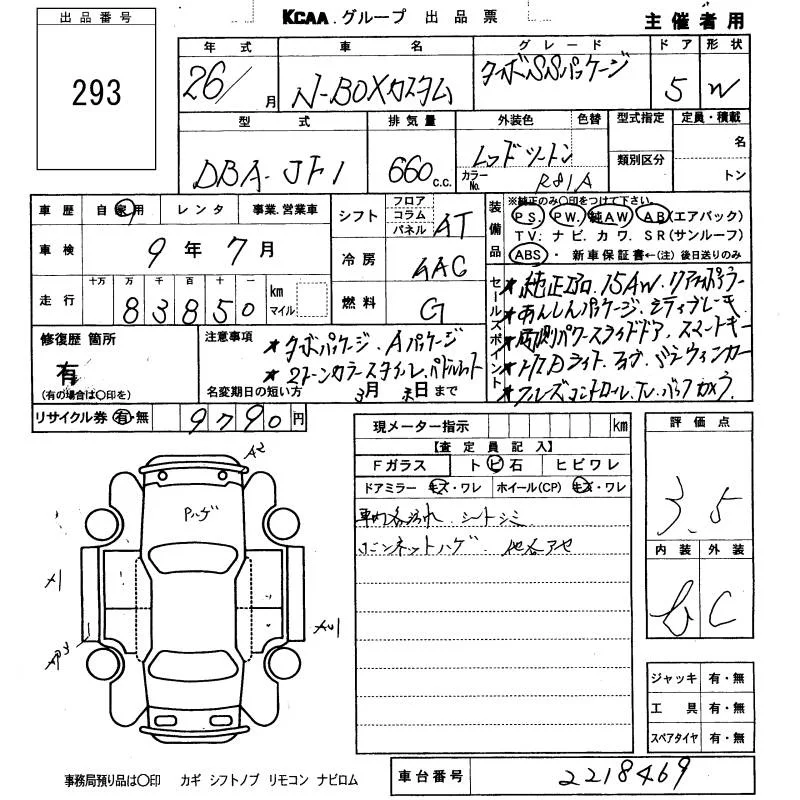 出品番号
293
KCAA.グループ 出品票
主催者用
年式 車名 グレード ドア 形状
26/ 月 N-BOXカスタム ターボSSパッケージ 5 W
型式 排気量 外装色 色替 型式指定 定員・積載
DBA-JF1 660 c.c. レッドツートン 名
カラーNo. R81A 類別区分 トン
車歴 自家用 レンタ 事業.営業車
車検 9年7月
走行 十万 万 千 百 十 一 km マイル
83850
シフト フロア コラム パネル AT
冷房 AAC
燃料 G
装備品
※純正のみ〇印をつけて下さい。
PS. PW. 純AW AB(エアバック)
TV: ナビ. カワ. SR(サンルーフ)
ABS・新車保証書←(注) 後日送りのみ
セールスポイント
★純正エアロ.15AW.リアスポイラー
★あんしんパッケージ.シティブレーキ
★両側パワースライドドア.スマートキー
★HIDライト.フォグ.ドアミラーウィンカー
★クルーズコントロール.TV.バックカメラ
修復歴 箇所
有
(有の場合は〇印を)
注意事項
★ターボパッケージ.Aパッケージ
★2トーンカラースタイル.パドルシフト
名変期日の短い方 3月末日まで
リサイクル券 有・無 9790円
現メーター指示 km
【査定員記入】
Fガラス トビ石 ヒビワレ
ドアミラー キズ・ワレ ホイール(CP) キズ・ワレ
車内各汚れ.シートシミ
ボンネットハゲ.他各アセ
評価点
3.5
内装 外装
b C
A2
Pハゲ
X1
AP3
AU1
ジャッキ 有・無
工具 有・無
スペアタイヤ 有・無
事務局預り品は〇印 カギ シフトノブ リモコン ナビロム
車台番号 2218469